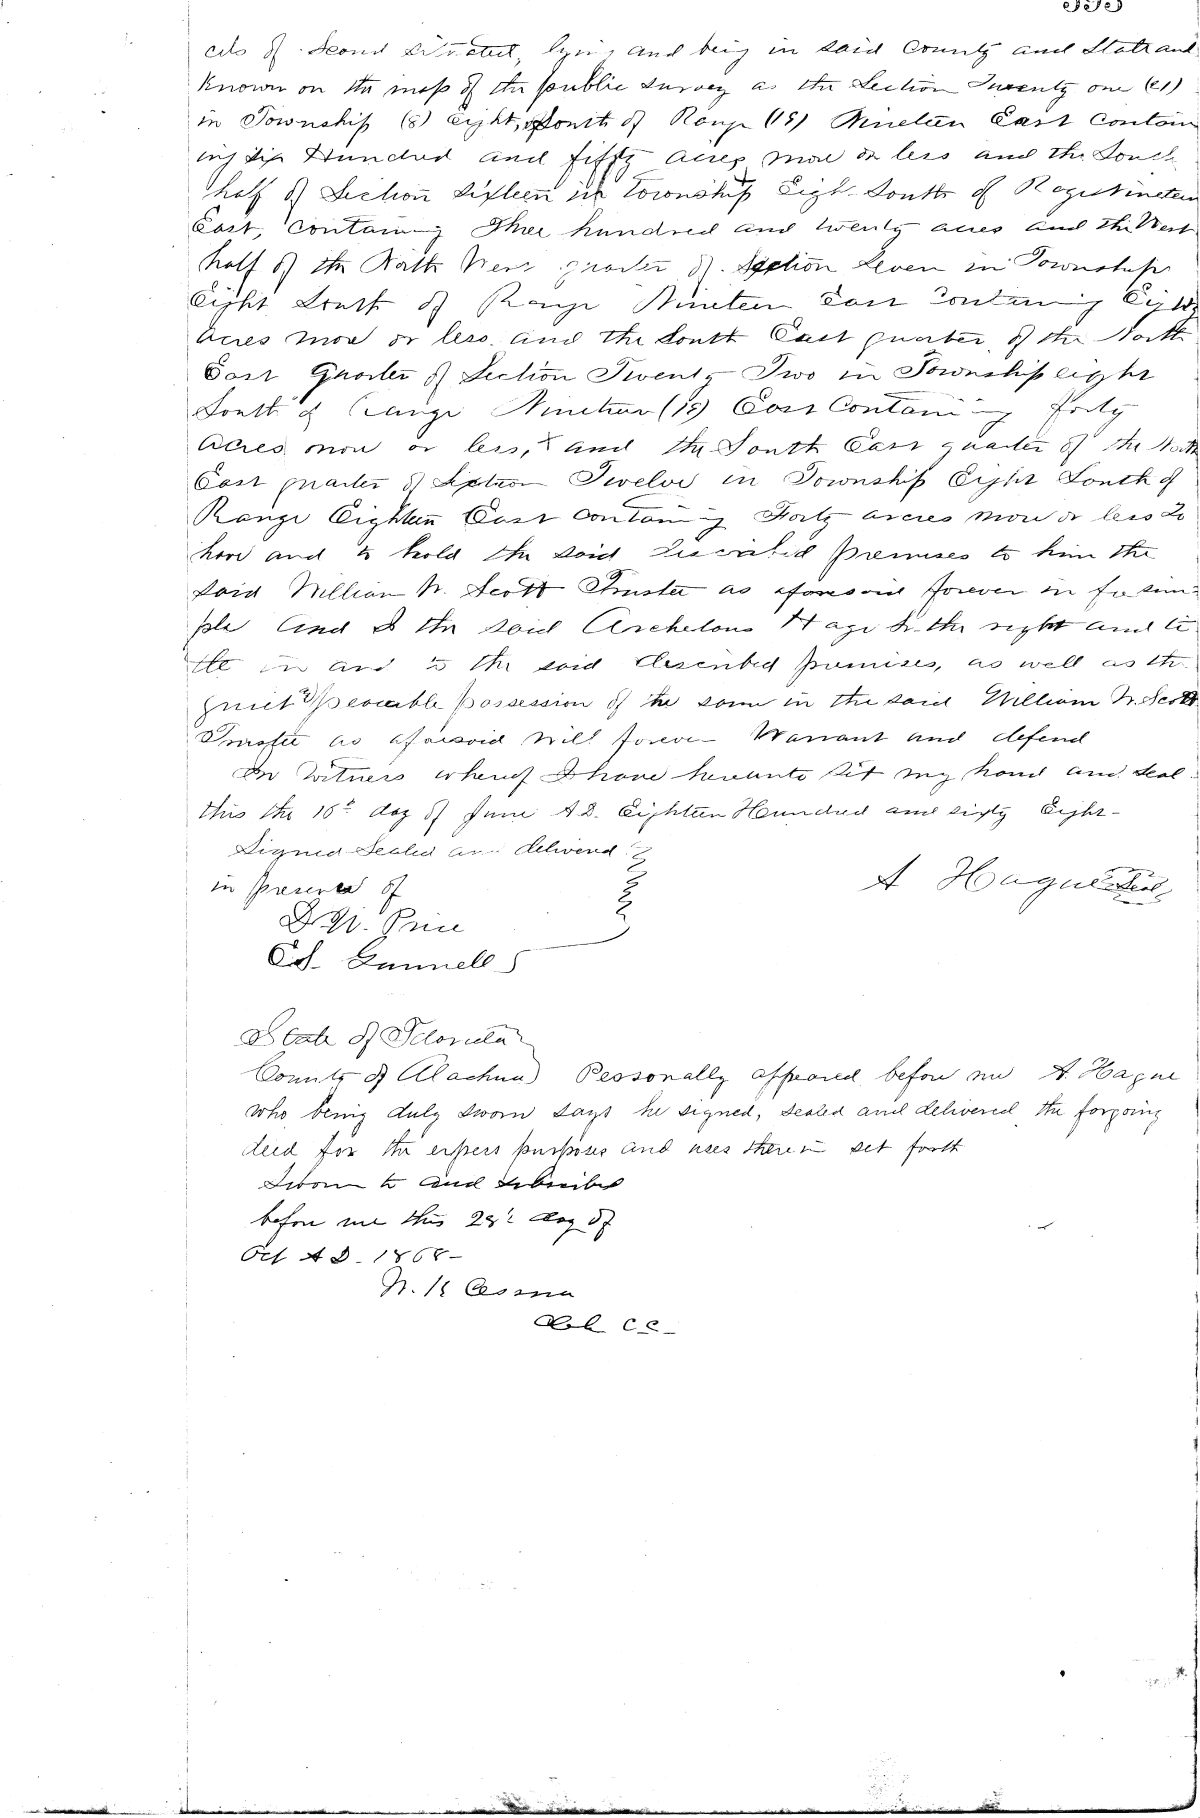 cels of Land situated, lying and being in said County and State and
Known on the map of the public survey as the Section Twenty one (21)
in Township (8) Eight, South of Range (19) Nineteen East Contain
ing Six Hundred and fifty acres more or less and the South
half of Section Sixteen in Township Eight South of Rage Nineteen
East, Containing Three hundred and twenty acres and the West
half of the North West quarter of Section Seven in Township
Eight South of Range Nineteen East Containing Eighty
acres more or less and the South East quarter of the North
East Quarter of Section Twenty Two in Township eight
South of Range Nineteen (19) East Containing forty
acres more or less, & and the South East quarter of the North
East quarter of Section Twelve in Township Eight South of
Range Eighteen East containing Forty acres more or less To
have and to hold the said described premises to him the
said William W. Scott Trustee as aforesaid forever in fee sim-
ple And I the said Archelous Hage do the right and ti
tle in and to the said described premises, as well as the
quiet & peaceable possession of the same in the said William W. Scott
Trustee as aforesaid will forever Warrant and defend
In Witness whereof I have hereunto set my hand and seal
this the 16th day of June A.D. Eighteen Hundred and sixty Eight-
Signed Sealed and delivered
in presence of
A Hague Seal
D. W. Price
Ed. Gunnells
State of Florida
County of Alachua) Personally appeared before me A. Hague
who being duly sworn says he signed, sealed and delivered the forgoing
deed for the express purposes and uses therein set forth
Sworn to and subscribed
before me this 28th day of
Oct A D. 1868-
W. K Cessna
Clk CC